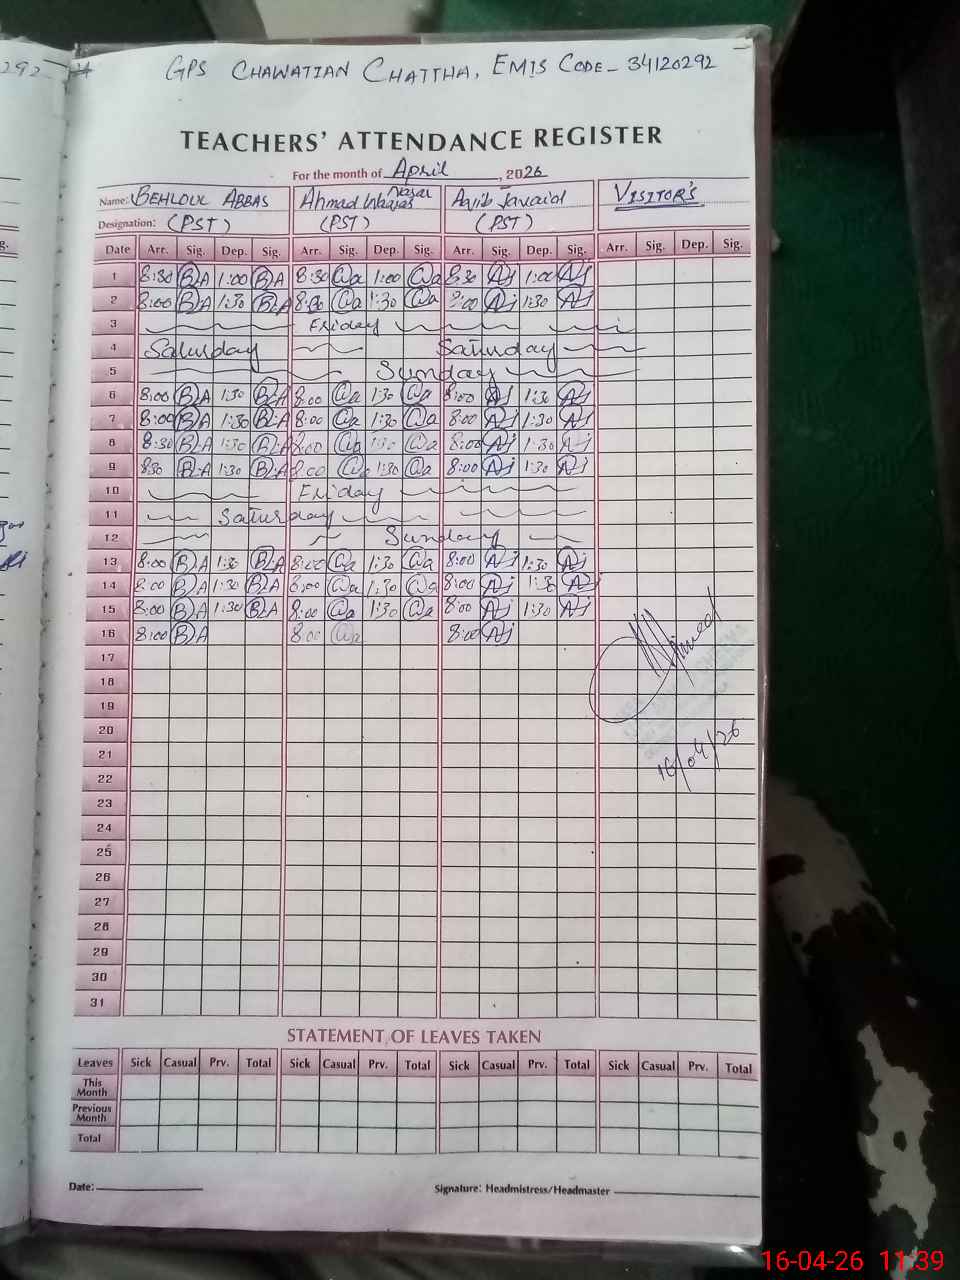 292
GPS CHAWATIAN CHATTHA, EMIS CODE- 34120292
TEACHERS' ATTENDANCE REGISTER
For the month of April, 2026
Name: BEHLOUL ABBAS Ahmad Waqas Aqib Javaid VISITOR'S
Designation: (PST) (PST) (PST)
Date Arr. Sig. Dep. Sig. Arr. Sig. Dep. Sig. Arr. Sig. Dep. Sig. Arr. Sig. Dep. Sig.
1 8:30 BA 1:00 BA 8:30 1:00 8:30 Aj 1:00 Aj
2 8:00 BA 1:30 BA 8:00 1:30 8:00 Aj 1:30 Aj
3 Friday
4 Saturday Saturday
5 Sunday
6 8:00 BA 1:30 BA 8:00 1:30 8:00 Aj 1:30 Aj
7 8:00 BA 1:30 BA 8:00 1:30 8:00 Aj 1:30 Aj
8 8:30 BA 1:30 BA 8:00 1:30 8:00 Aj 1:30 Aj
9 8:30 BA 1:30 BA 8:00 1:30 8:00 Aj 1:30 Aj
10 Friday
11 Saturday
12 Sunday
13 8:00 BA 1:30 BA 8:00 1:30 8:00 Aj 1:30 Aj
14 8:00 BA 1:30 BA 8:00 1:30 8:00 Aj 1:30 Aj
15 8:00 BA 1:30 BA 8:00 1:30 8:00 Aj 1:30 Aj
16 8:00 BA 8:00 8:00 Aj
17
18
19
20
21
22
23
24
25
26
27
28
29
30
31
16/04/26
STATEMENT OF LEAVES TAKEN
Leaves Sick Casual Prv. Total Sick Casual Prv. Total Sick Casual Prv. Total Sick Casual Prv. Total
This
Month
Previous
Month
Total
Date: Signature: Headmistress/Headmaster
16-04-26 11:39